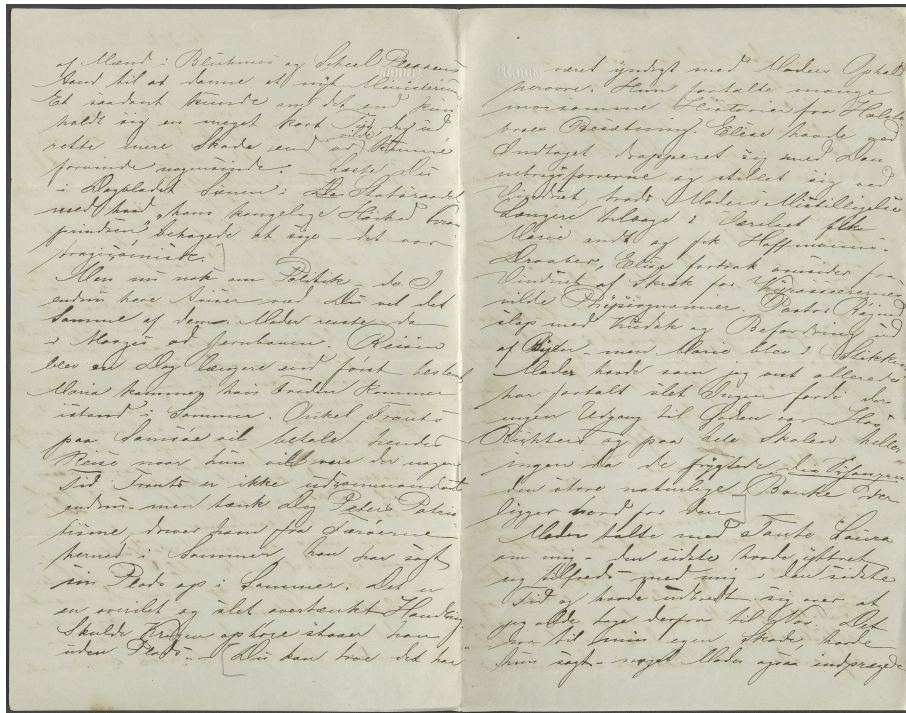 af Mænd i Bluhmes og Scheel Plessens
Aand til at danne et nyt Ministerium
Et saadant kunde om det end kun
holdt sig en meget kort Tid, dog ud
rette mere Skade end at kunne
forvinde nogensinde. — Læste Du
i Dagbladet Scenen i Statsraadet
med hvad "hans kongelige Höihed Kron
prindsen" behagede at sige — det var
tragicomisk.
Men nu nok om Politik, da I
endnu have Aviser ved Du vel det
Samme af dem. Moder reiste da
i Morges ad Jernbanen. Reisen
blev en Dag længere end först bestemt
Maria kommer hvis Freden kommer
istand i Sommer. Onkel
paa Samsöe vil betale hendes
Reise naar hun vil være der nogen
Tid er ikke
endnu — men tænk Dig Peters Patrio
tisme, driver ham fra Færöerne
herned i Sommer, han har sagt
sin Plads op i Sommer. Det er
en overilet og slet overtænkt Handling
Skulde Krigen ophöre staaer han
uden Plads. — Du kan troe det har
været yndigt med Moders Ophold
herovre. Hun fortalte mange
morsomme Historier fra Holste
bros Besættning. Elise havde ved
Indtoget drapperet sig med Dan
nebrogsfarverne og stillet sig ved
Vinduet, trods Moders Misbilligelse
Længere tilbage i Værelset
Marie ondt og fik Hoffmanns
Draaber, Elise fortrak
Vinduet af Skræk for Kyrasserernes
vilde Physiognomier Pastor
slap med Kudsk og Befordring ud
af Byen — men Marie blev i Stikken
Moder havde som jeg ovf allerede
har fortalt slet Ingen fordi der
ingen Udgang til Gaden
og paa hele Skolen heller
ingen da de frygtede
den store naturlige Banke der
ligger
Moder talte med Tante Laura
om mig — den sidste havde yttret
sig tilfreds med mig i den sidste
Tid og havde sig over at
jeg vilde tage derfra til Mai. Det
var til min egen Skade, havde
hun sagt — noget Moder ogsaa indprægede